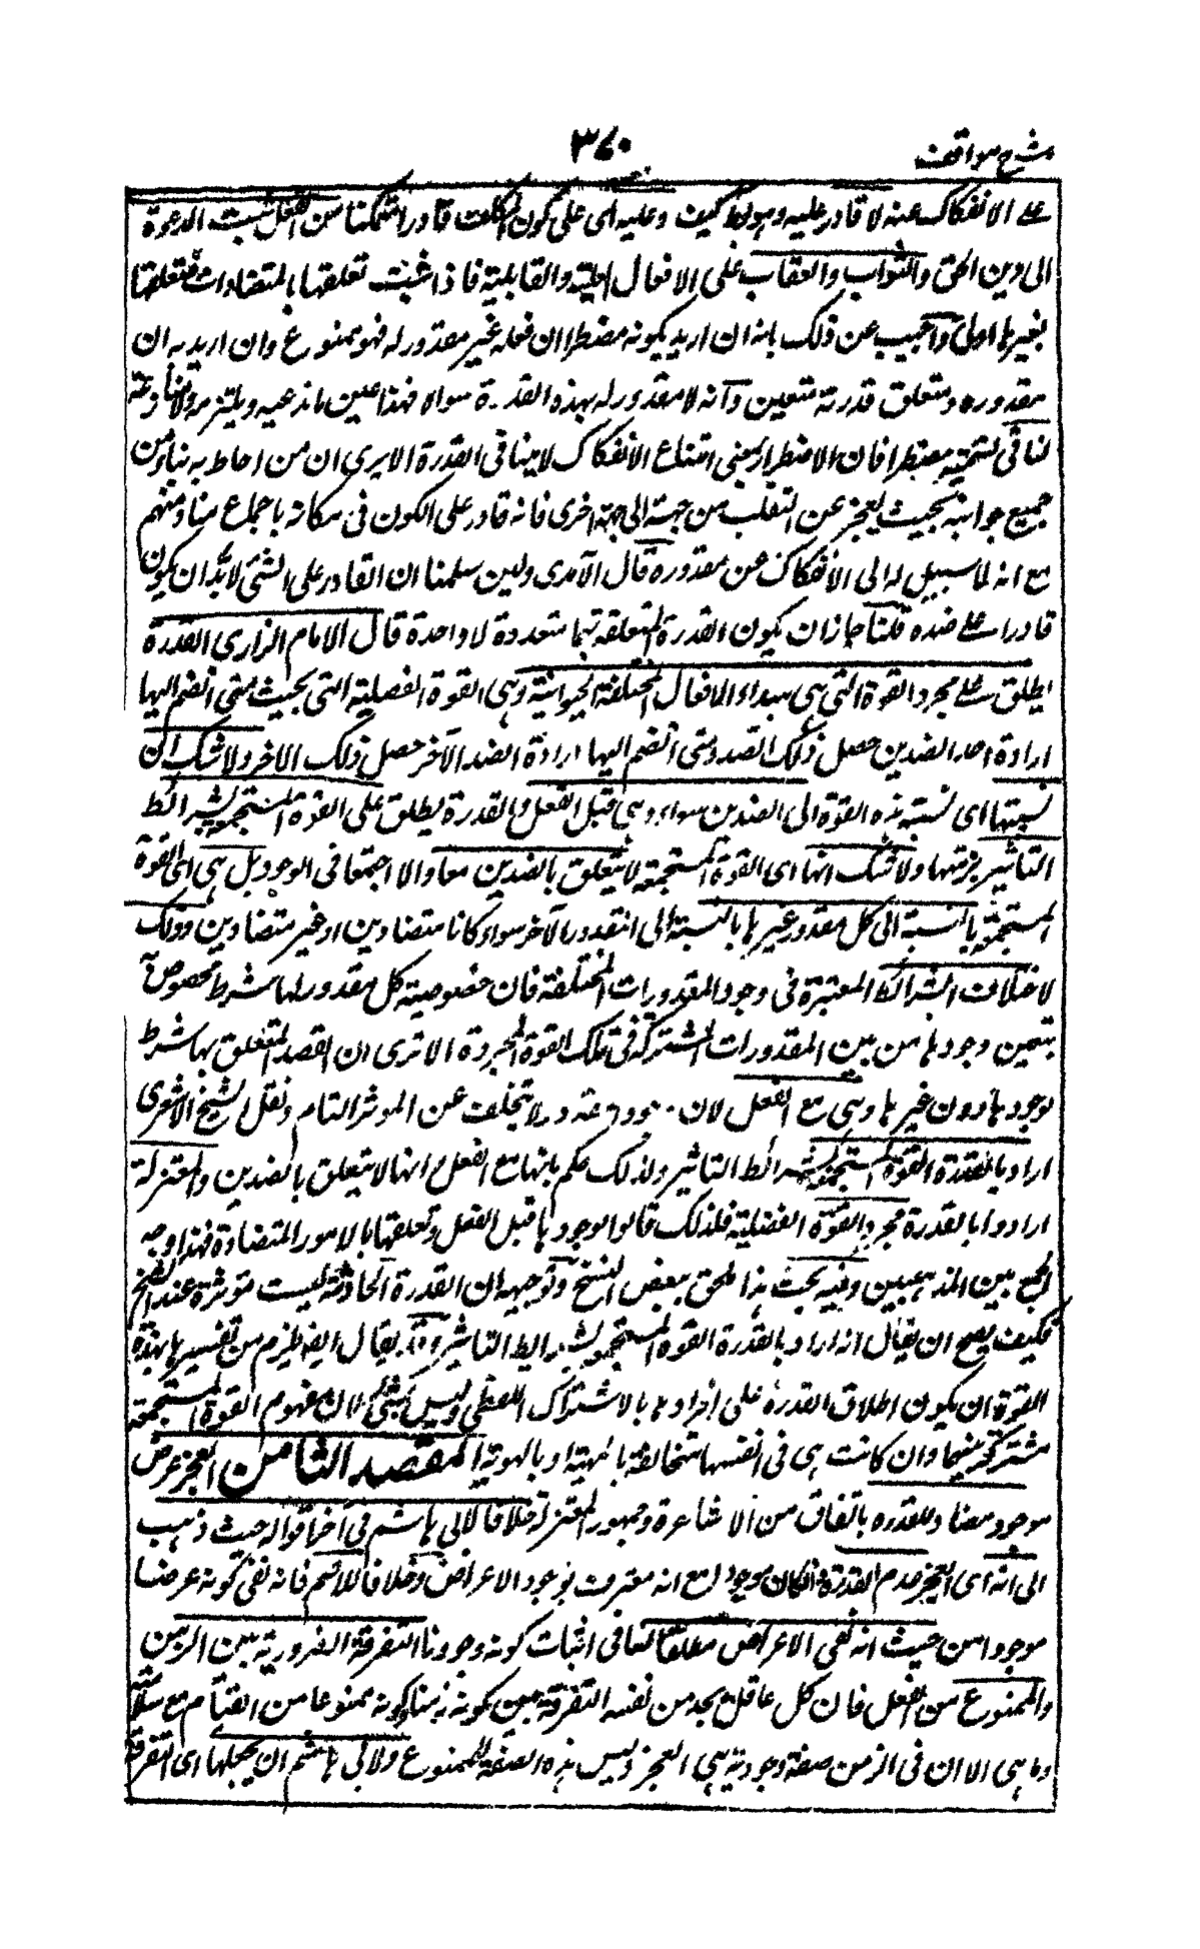 شرح مواقف
٣٤٠
على الانفكاك عنه لا قادر عليه وهو بط كيف وعليه اى على كون المكلف قادرا متمكنا من الفعل تثبت الدعوة
الى دين الحق والثواب والعقاب على الافعال
بغيرها اولى واجيب عن ذلك بانه ان اريد بكونه مضطرا ان فعله غير مقدور له فهو ممنوع وان اريد به ان
مقدوره ومتعلق قدرته متعين وانه لا مقدور له بهذه القدرة سواه فهذا عين ما ندعيه ونلتزمه ولا منازعة
لنا فى تسميته مضطرا فان الاضطرار بمعنى امتناع الانفكاك لا ينافى القدرة الا يرى ان من احاط به بناء من
جميع جوانبه بحيث يعجز عن التقلب من جهة الى جهة اخرى فانه قادر على الكون فى مكانه باجماع منا ومنهم
مع انه لا سبيل له الى الانفكاك عن مقدوره قال الآمدى ولين سلمنا ان القادر على الشئ لابد ان يكون
قادرا على ضده قلنا جاز ان يكون القدرة المتعلقة بهما متعددة لا واحدة قال الامام الرازى القدرة
يطلق على مجرد القوة التى هى مبداء الافعال المختلفة الحيوانية وهى القوة العضلية التى بحيث متى انضم اليها
ارادة احد الضدين حصل ذلك الضد ومتى انضم اليها ارادة الضد الآخر حصل ذلك الاخر ولا شك ان
نسبتها اى نسبة هذه القوة الى الضدين سواء وهى قبل الفعل والقدرة يطلق على القوة المستجمعة لشرائط
التاثير برمتها ولا شك انها اى القوة المستجمعة لا يتعلق بالضدين معا والا اجتمعا فى الوجود بل هى اى القوة
المستجمعة بالنسبة الى كل مقدور غيرها بالنسبة الى المقدور الآخر سواء كانا متضادين او غير متضادين وذلك
لاختلاف الشرائط المعتبرة فى وجود المقدورات المختلفة فان خصوصية كل مقدور لها شرط مخصوص
يتعين وجودها من بين المقدورات المشتركة فى تلك القوة المجردة الا ترى ان القصد المتعلق بها شرط
لوجودها دون غيرها وهى مع الفعل لان وجود المقدور لا يتخلف عن الموثر التام ونقل الشيخ الاشعرى
اراد بالقدرة القوة المستجمعة لشرائط التاثير ولذلك حكم بانها مع الفعل وانها لا يتعلق بالضدين والمعتزلة
ارادوا بالقدرة مجرد القوة العضلية فلذلك قالوا لوجودها قبل الفعل وتعلقها بالامور المتضادة فهذا وجه
الجمع بين المذهبين وفيه بحث هذا ملحق ببعض النسخ وتوجيهه ان القدرة الحادثة ليست موثرة عند الشيخ
فكيف يصح ان يقال انه اراد بالقدرة القوة المستجمعة لشرايط التاثير وقد يقال ايضا يلزم من تفسيرها بهذه
القوة ان يكون اطلاق القدرة على افرادها بالاشتراك اللفظى وليس بشئ لان مفهوم القوة المستجمعة
مشترك بينها وان كانت هى فى انفسها متخالفة بالمهية او بالهوية المقصد الثامن العجز عرض
موجود مضاد للقدرة باتفاق من الاشاعرة وجمهور المعتزلة خلافا لابى هاشم فى آخر اقواله حيث ذهب
الى انه اى العجز عدم القدرة مع انه معترف بوجود الاعراض وخلافا للاصم فانه نفى كونه عرضا
موجودا من حيث انه نفى الاعراض مطلقا لنا فى اثبات كونه وجوديا التفرقة الضرورية بين الزمن
والممنوع من الفعل فان كل عاقل يجد من نفسه التفرقة بين كونه زمنا وكونه ممنوعا من القيام مع سلامته
وما هى الا ان فى الزمن صفة وجودية هى العجز وليس هذه الصفة للممنوع ولابى هاشم ان يجعلها اى التفرقة